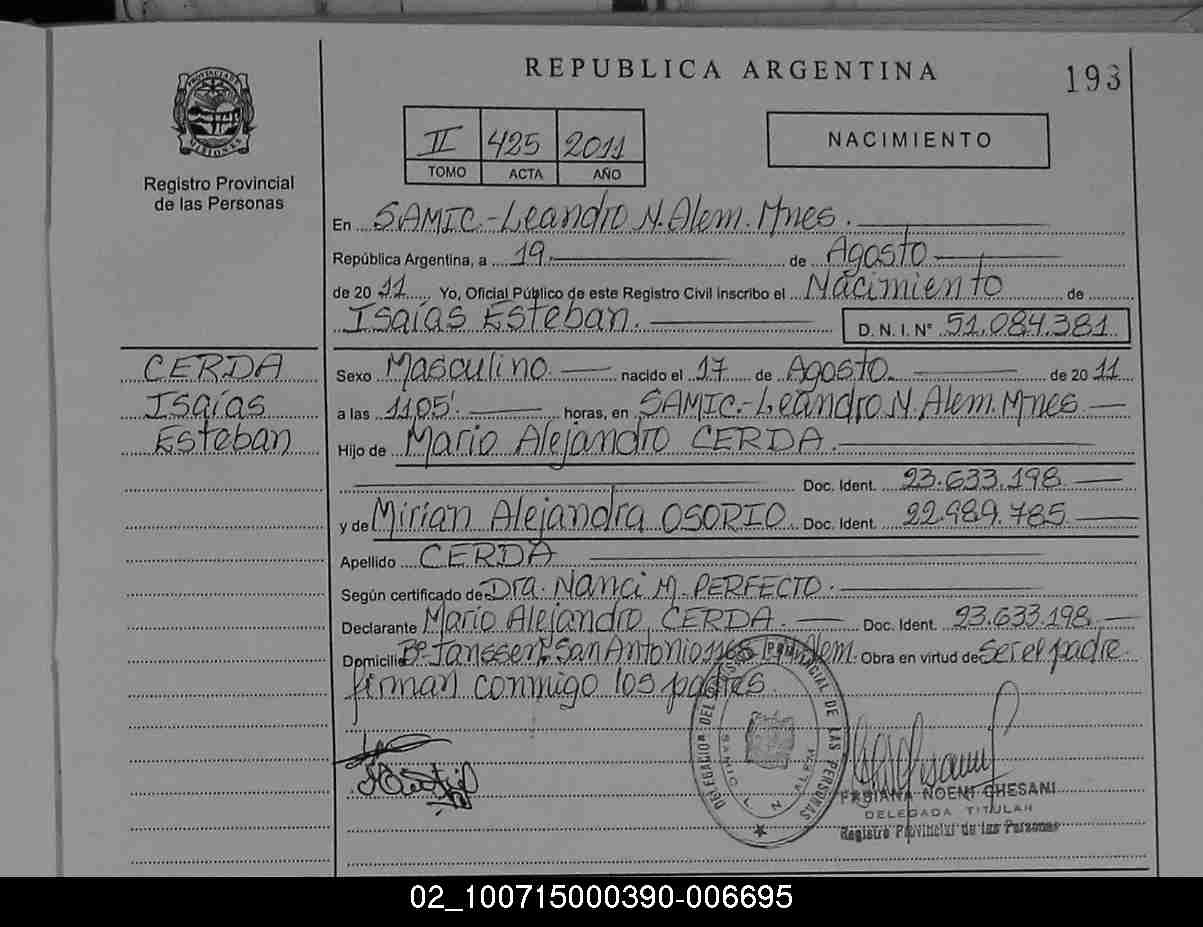 REPUBLICA ARGENTINA
193
PROVINCIA DE MISIONES
Registro Provincial
de las Personas
II 425 2011
TOMO ACTA AÑO
NACIMIENTO
En SAMIC.-Leandro N. Alem. Mnes.
República Argentina, a 19 de Agosto
de 2011 Yo, Oficial Público de este Registro Civil inscribo el Nacimiento de
Isaías Esteban.
D. N. I. Nº 51.084.381
CERDA
Isaías
Esteban
Sexo Masculino nacido el 17 de Agosto. de 2011
a las 1105' horas, en SAMIC.-Leandro N. Alem. Mnes
Hijo de Mario Alejandro CERDA.
Doc. Ident. 23.633.198
y de Mirian Alejandra OSORIO Doc. Ident. 22.989.785
Apellido CERDA
Según certificado de Dra. Nanci M. PERFECTO.
Declarante Mario Alejandro CERDA. Doc. Ident. 23.633.198
Domicilio Bº Janssen, San Antonio Alem. Obra en virtud de Ser el padre.
firman conmigo los padres.
DELEGACION DEL REGISTRO PROVINCIAL DE LAS PERSONAS
SAMIC L. N. ALEM
FABIANA NOEMI CHESANI
DELEGADA TITULAR
Registro Provincial de las Personas
02_100715000390-006695